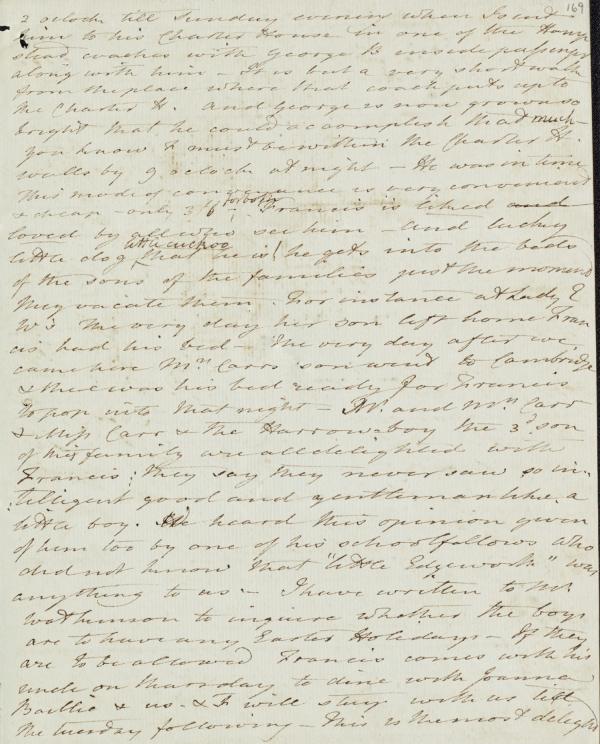 169
2 oclock till Sunday evening when I send
him to his Charter House in one of the Hamp
stead coaches with George B inside passenger
along with him - It is but a very short walk
from the place where that coach puts up to
the Charter H. And George is now grown so
bright that he could accomplish that much -
you know F must be within the Charter H.
walls by 9 oclock at night - He was in time
This mode of conveyance is very convenient
& cheap - only 3s 6d for both. Francis is liked and
loved by all who see him - and lucky
little dog little cuckoo that he is! he gets into the beds
of the sons of the families just the moment
they vacate them. For instance at Lady E
W's the very day her son left home Fran
cis had his bed - The very day after we
came here Mrs Carrs son went to Cambridge
& there was his bed ready for Francis
to pop into that night - Mr. and Mrs Carr
& Miss Carr & the Harrow boy the 3d son
of this family are all delighted with
Francis; they say they never saw so in-
:telligent good and gentlemanlike a
little boy. We heard this opinion given
of him too by one of his schoolfellows who
did not know that "little Edgeworth" was
anything to us - I have written to Mr
Watkinson to inquire whether the boys
are to have any Easter Holidays - If they
are to be allowed Francis comes with his
uncle on Thursday to dine with Joanna
Baillie & us - & F will stay with us till
the tuesday following - This is the most delight